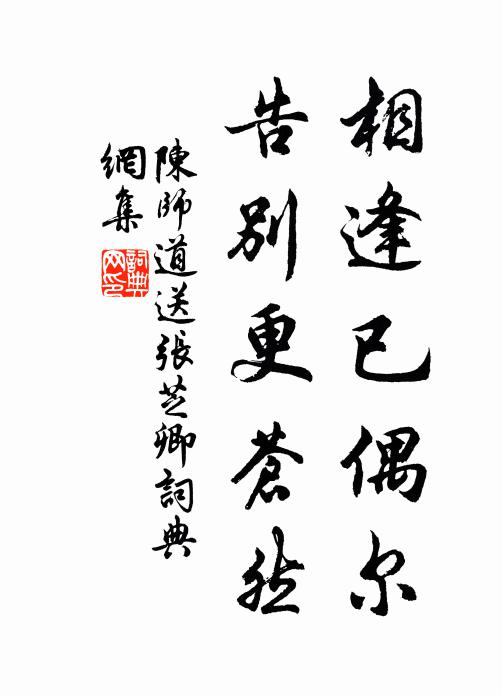 相逢已偶尔
告别更苍然
陳师道送張芝卿詞典
網集
詞典
网印